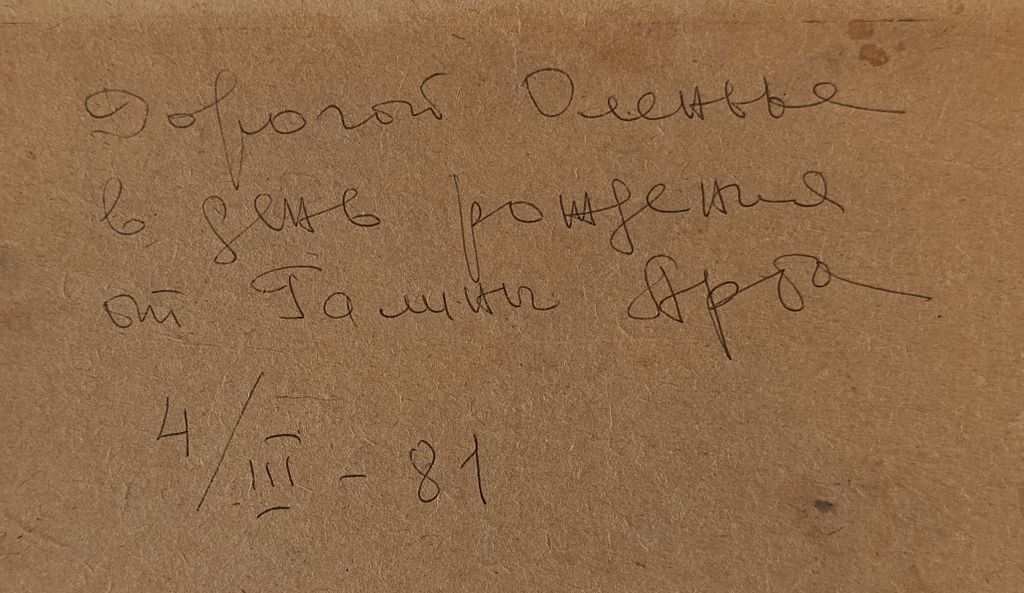 Дорогой Оленьке
в день рождения
от Галины
4/III - 81